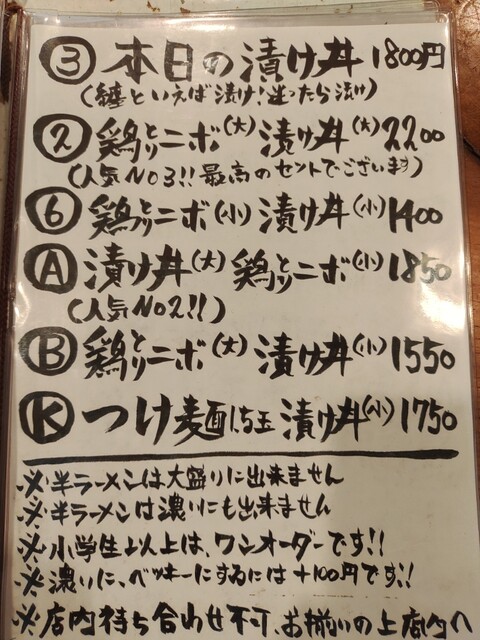 ③ 本日の漬け丼 1800円
(纏といえば漬け!迷ったら漬け)
② 鶏とりニボ(大) 漬け丼(大) 2200
(人気NO3!! 最高のセットでございます)
⑥ 鶏とりニボ(小) 漬け丼(小) 1400
Ⓐ 漬け丼(大) 鶏とりニボ(小) 1850
(人気NO2!!)
Ⓑ 鶏とりニボ(大) 漬け丼(小) 1550
Ⓚ つけ麺1.5玉 漬け丼(小) 1750
※半ラーメンは大盛りに出来ません
※半ラーメンは濃いにも出来ません
※小学生以上は、ワンオーダーです!!
※濃いに、ベッキーにするには+100円です!!
※店内待ち合わせ不可、お揃いの上店内へ